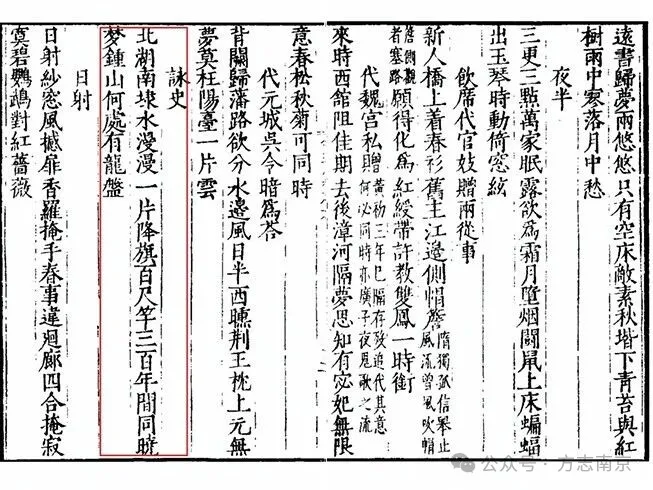 遠書歸夢兩悠悠只有空床敵素秋堦下青苔與紅
樹雨中寒落月中愁
夜半
三更三點萬家眠露欲為霜月墮烟鬬鼠上床蝙蝠
出玉琴時動倚窓絃
飲席代官妓贈兩從事
新人橋上着春衫舊主江邊側帽簷隋獨孤信舉止風流曾風吹帽
簷側觀者塞路願得化為紅綬帶許教雙鳳一時銜
代魏宮私贈黃初三年已隔存歿追代其意何必同時亦廣子夜鬼歌之流
來時西館阻佳期去後漳河隔夢思知有宓妃無限
意春松秋菊可同時
代元城吳令暗為荅
背闕歸藩路欲分水邊風日半西曛荆王枕上元無
夢莫枉陽臺一片雲
詠史
北湖南埭水漫漫一片降旗百尺竿三百年間同曉
夢鍾山何處有龍盤
日射
日射紗窓風撼扉香羅掩手春事違廻廊四合掩寂
寞碧鸚鵡對紅薔薇
公众号·方志南京